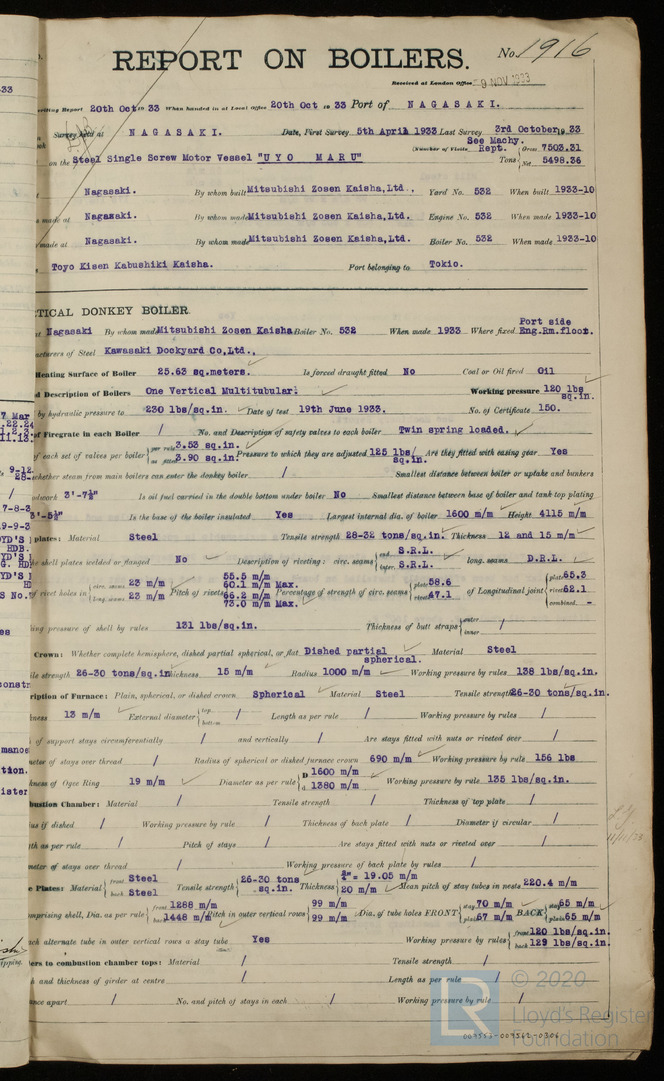 REPORT ON BOILERS.
No. 1916
Received at London Office 9 NOV 1933
writing Report 20th Oct 19 33 When handed in at Local Office 20th Oct 19 33 Port of NAGASAKI.
Survey held at NAGASAKI. Date, First Survey 5th April 1933 Last Survey 3rd October 19 33
(Number of Visits See Machy. Rept.
on the Steel Single Screw Motor Vessel "UYO MARU" Tons { Gross 7503.31 Net 5498.36
Nagasaki. By whom built Mitsubishi Zosen Kaisha, Ltd., Yard No. 532 When built 1933-10
made at Nagasaki. By whom made Mitsubishi Zosen Kaisha, Ltd. Engine No. 532 When made 1933-10
made at Nagasaki. By whom made Mitsubishi Zosen Kaisha, Ltd. Boiler No. 532 When made 1933-10
Toyo Kisen Kabushiki Kaisha. Port belonging to Tokio.
TICAL DONKEY BOILER.
at Nagasaki By whom made Mitsubishi Zosen Kaisha Boiler No. 532 When made 1933 Where fixed Port side Eng.Rm.floor.
acturers of Steel Kawasaki Dockyard Co,Ltd.,
Heating Surface of Boiler 25.63 sq.meters. Is forced draught fitted No Coal or Oil fired Oil
d Description of Boilers One Vertical Multitubular. Working pressure 120 lbs sq.in.
by hydraulic pressure to 230 lbs/sq.in. Date of test 19th June 1933. No. of Certificate 150.
of Firegrate in each Boiler / No. and Description of safety valves to each boiler Twin spring loaded.
of each set of valves per boiler { per rule 3.53 sq.in. as fitted 3.90 sq.in. Pressure to which they are adjusted 125 lbs/sq.in. Are they fitted with easing gear Yes
whether steam from main boilers can enter the donkey boiler / Smallest distance between boiler or uptake and bunkers
woodwork 3'-7½" Is oil fuel carried in the double bottom under boiler No Smallest distance between base of boiler and tank top plating
3'-5½" Is the base of the boiler insulated Yes Largest internal dia. of boiler 1600 m/m Height 4115 m/m
plates: Material Steel Tensile strength 28-32 tons/sq.in. Thickness 12 and 15 m/m
shell plates welded or flanged No Description of riveting: circ. seams { end S.R.L. inter. S.R.L. long. seams D.R.L.
of rivet holes in { circ. seams 23 m/m long. seams 23 m/m Pitch of rivets { 55.5 m/m 60.1 m/m Max. 66.2 m/m 73.0 m/m Max. Percentage of strength of circ. seams { plate 58.6 rivets 47.1 of Longitudinal joint { plate 65.3 rivets 62.1 combined. -
ing pressure of shell by rules 131 lbs/sq.in. Thickness of butt straps { outer / inner
Crown: Whether complete hemisphere, dished partial spherical, or flat Dished partial spherical. Material Steel
ile strength 26-30 tons/sq.in Thickness 15 m/m Radius 1000 m/m Working pressure by rules 138 lbs/sq.in.
ription of Furnace: Plain, spherical, or dished crown Spherical Material Steel Tensile strength 26-30 tons/sq.in.
kness 13 m/m External diameter { top. / bottom Length as per rule / Working pressure by rules /
of support stays circumferentially / and vertically / Are stays fitted with nuts or riveted over /
meter of stays over thread / Radius of spherical or dished furnace crown 690 m/m Working pressure by rule 156 lbs
kness of Ogee Ring 19 m/m Diameter as per rule { D 1600 m/m d 1380 m/m Working pressure by rule 135 lbs/sq.in.
bustion Chamber: Material / Tensile strength / Thickness of top plate /
ius if dished / Working pressure by rule / Thickness of back plate / Diameter if circular /
gth as per rule / Pitch of stays / Are stays fitted with nuts or riveted over /
meter of stays over thread / Working pressure of back plate by rules /
e Plates: Material { front Steel back Steel Tensile strength { 26-30 tons sq.in. Thickness { ¾"= 19.05 m/m 20 m/m Mean pitch of stay tubes in nests 220.4 m/m
omprising shell, Dia. as per rule { front 1288 m/m back 1448 m/m Pitch in outer vertical rows { 99 m/m 99 m/m Dia. of tube holes FRONT { stay 70 m/m plain 67 m/m BACK { stay 65 m/m plain 65 m/m
each alternate tube in outer vertical rows a stay tube Yes Working pressure by rules { front 120 lbs/sq.in. back 129 lbs/sq.in.
ders to combustion chamber tops: Material / Tensile strength /
h and thickness of girder at centre / Length as per rule /
ance apart / No. and pitch of stays in each / Working pressure by rule /
LR
© 2020
Lloyd's Register
Foundation
007553-007562-0306